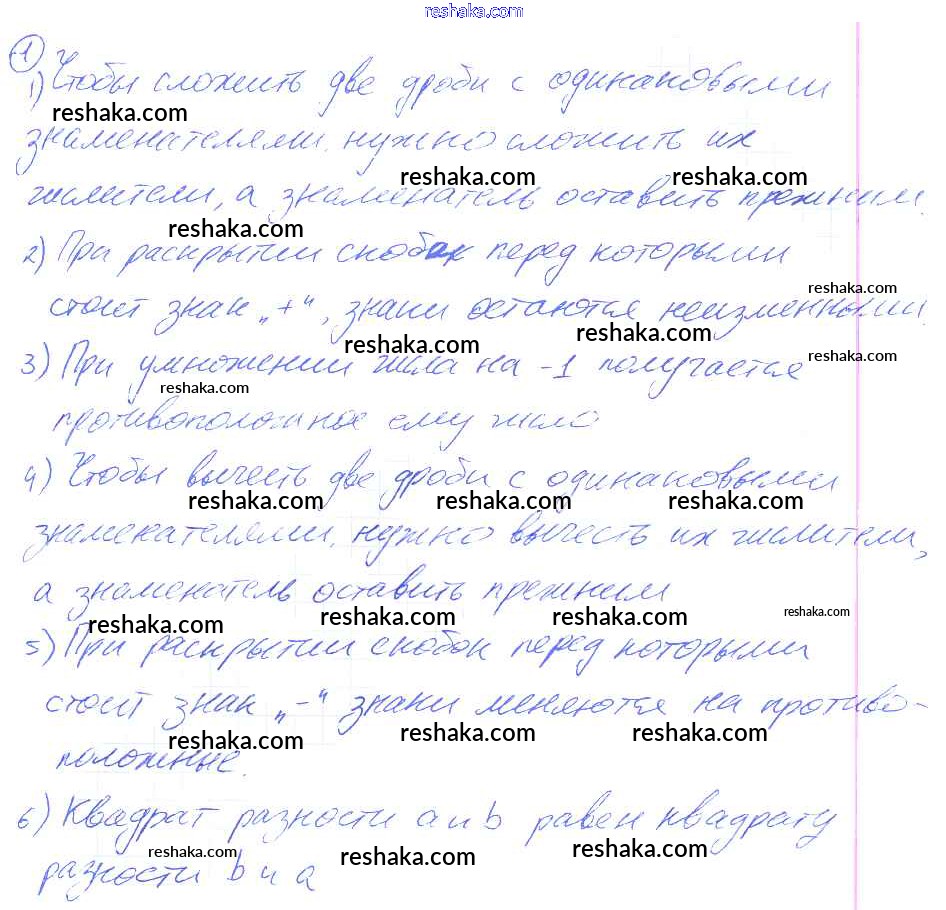 reshaka.com
1
1) Чтобы сложить две дроби с одинаковыми
reshaka.com
знаменателями, нужно сложить их
reshaka.com reshaka.com
числители, а знаменатель оставить прежним.
reshaka.com
2) При раскрытии скобок перед которыми
reshaka.com
стоит знак „+“, знаки остаются неизменными.
reshaka.com reshaka.com
3) При умножении числа на -1 получается
reshaka.com
reshaka.com
противоположное ему число
4) Чтобы вычесть две дроби с одинаковыми
reshaka.com reshaka.com reshaka.com
знаменателями, нужно вычесть их числители,
а знаменатель оставить прежним
reshaka.com reshaka.com reshaka.com
reshaka.com
5) При раскрытии скобок перед которыми
стоит знак „-“ знаки меняются на противо-
reshaka.com reshaka.com reshaka.com
положные.
6) Квадрат разности a и b равен квадрату
reshaka.com reshaka.com reshaka.com
разности b и a